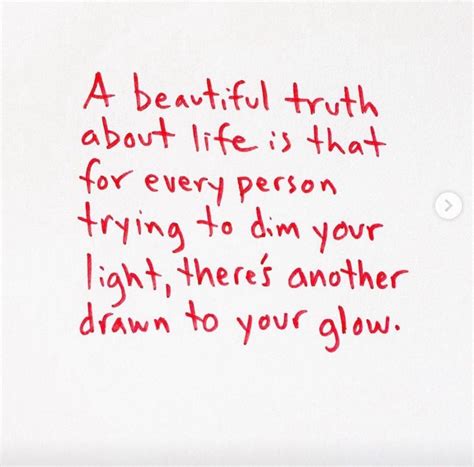 A beautiful truth
about life is that
for every person
trying to dim your
light, there's another
drawn to your glow.